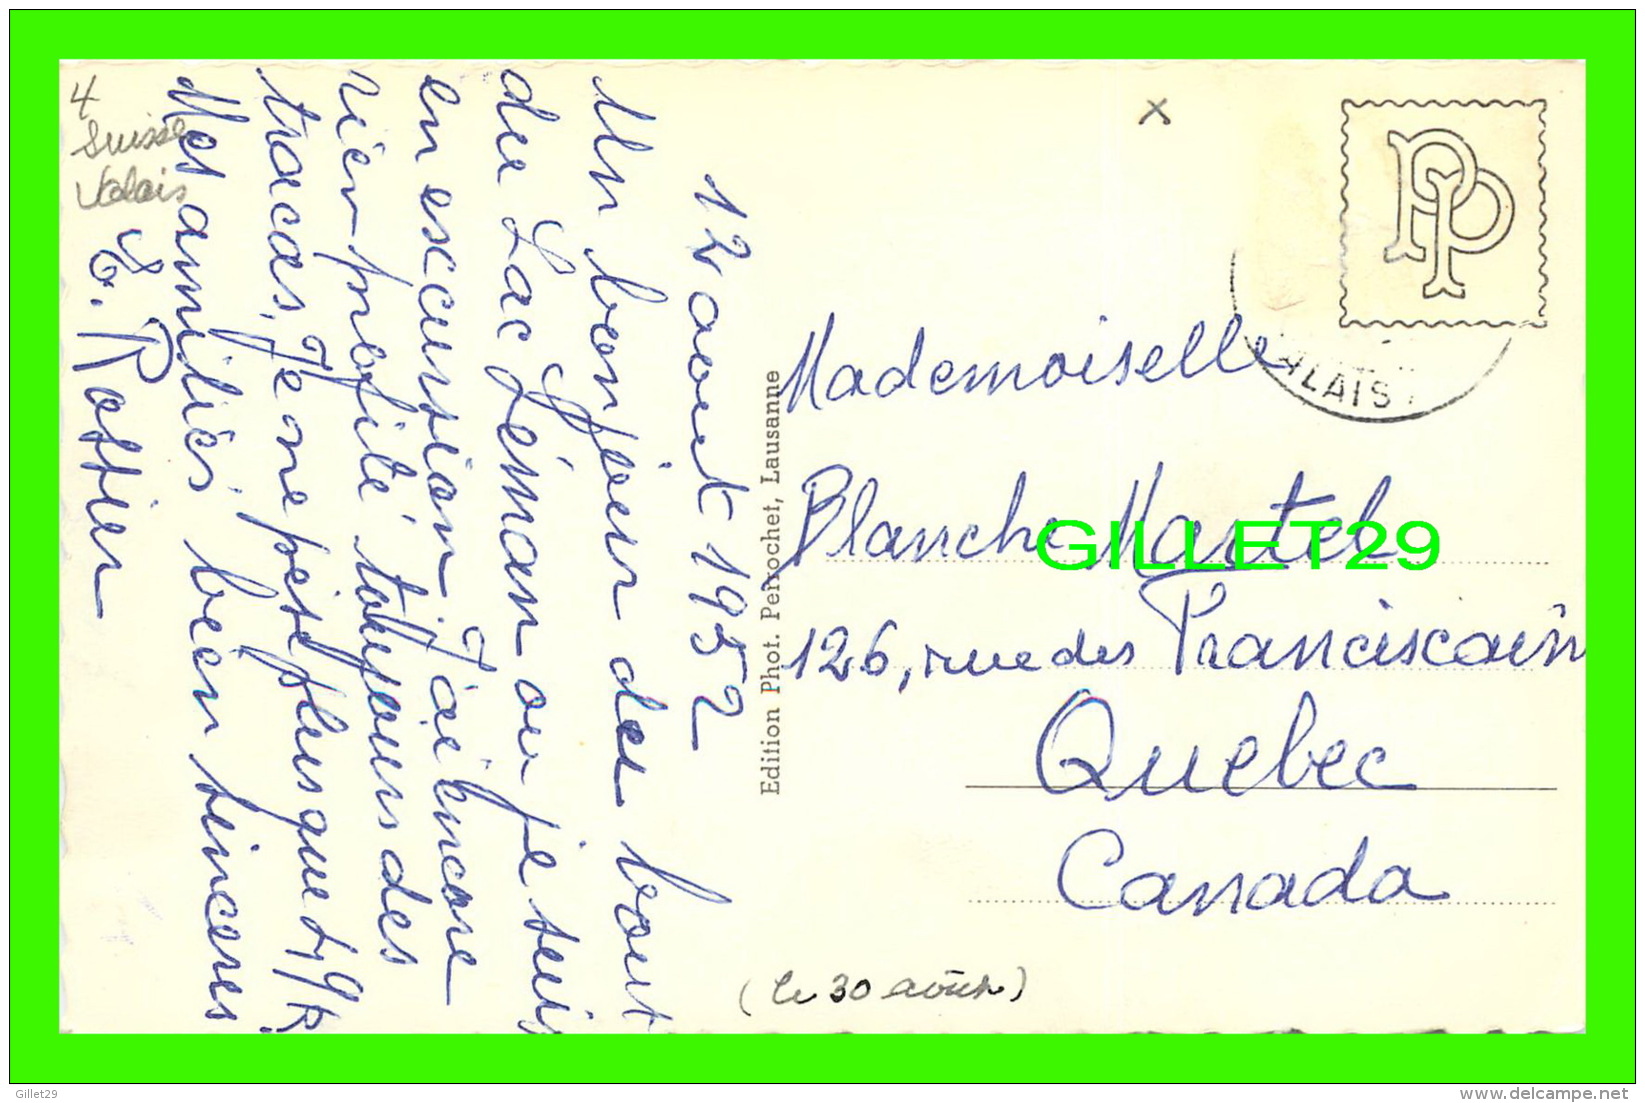 4
Suisse
Valais
12 aout 1952
Un bonjour du bout
du Lac Léman ou je suis
en excursion. J'ai encore
rien profité toujours des
tracas, Je ne pèse plus que
Mes amitiés bien sinceres
E. Rottier
Edition Phot. Perrochet, Lausanne
x
PP
ALAIS
Mademoiselle
Blanche Martel
GILLET29
126, rue des Franciscain
Quebec
Canada
(le 30 août)
Gillet29
delcampe.net